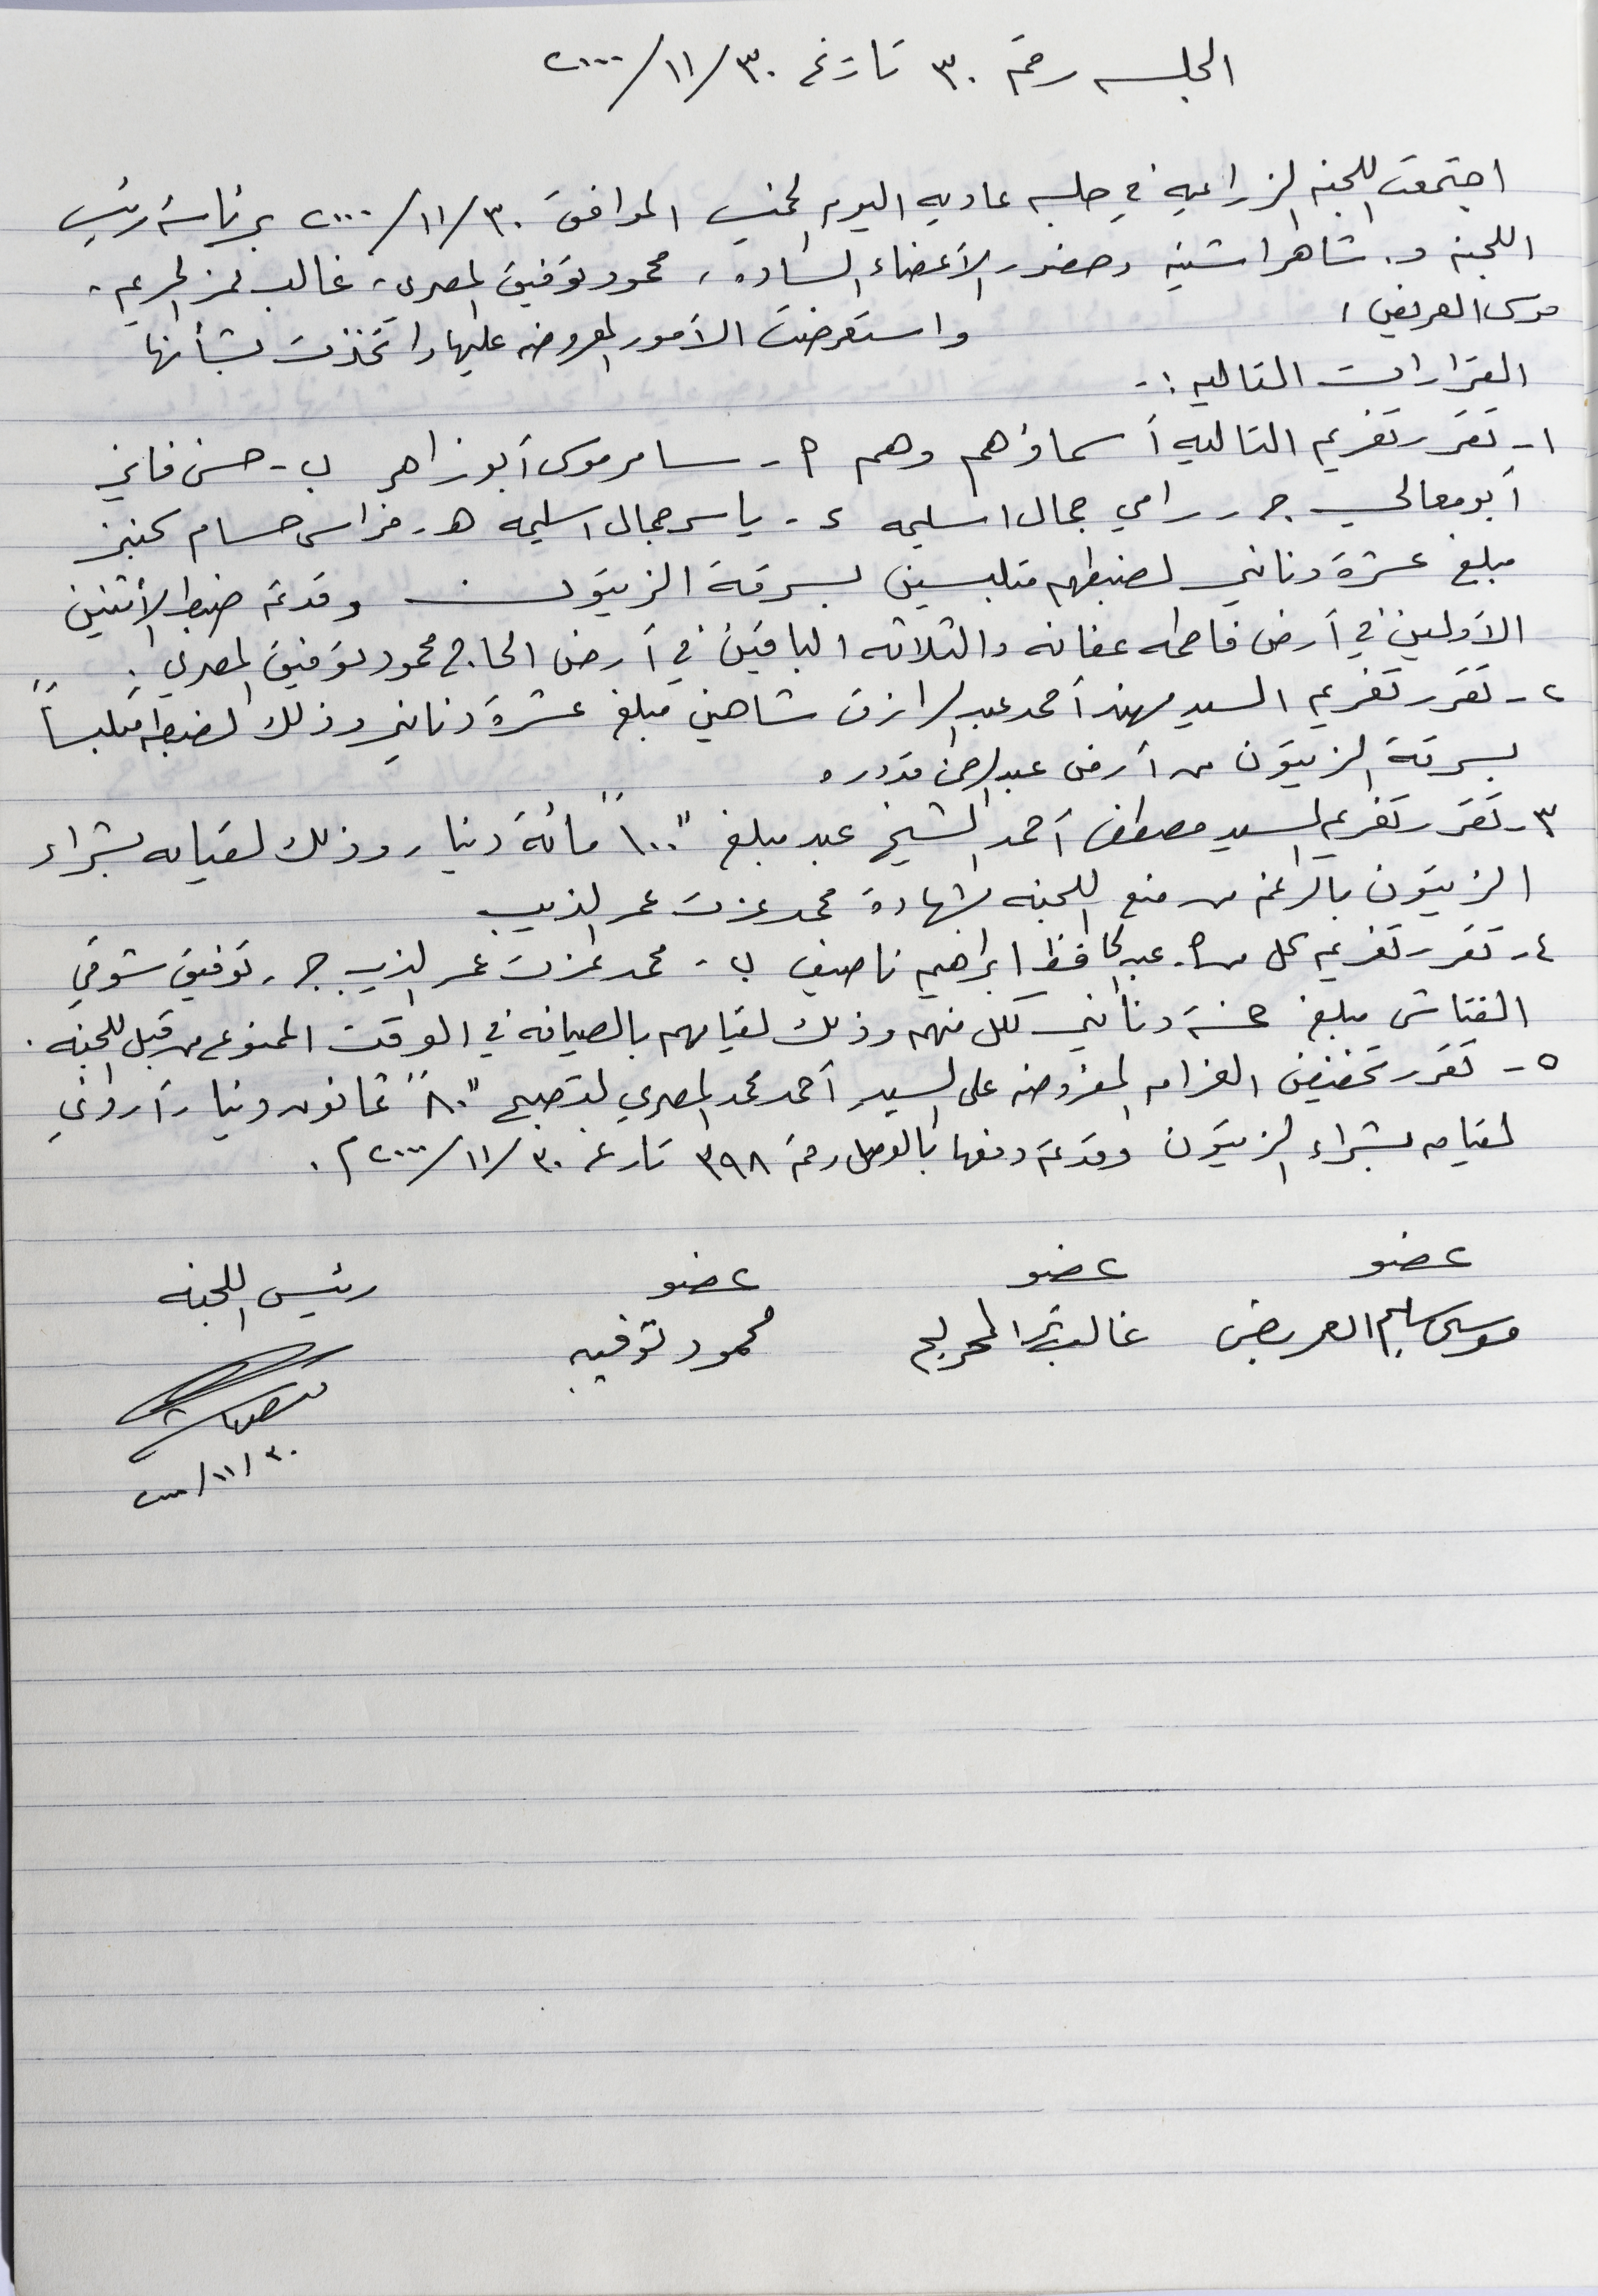 الجلسه رقم ٣٠ تاريخ ٣٠/١١/٢٠٠٠
اجتمعت اللجنه الزراعيه في جلسه عاديه اليوم الخميس الموافق ٣٠/١١/٢٠٠٠ برئاسة رئيس
اللجنه د. شاهر اشتيه وحضور الأعضاء الساده، محمود توفيق المصري، غالب نمر الحريم،
موسى العريض،
واستعرضت الأمور المعروضه عليها واتخذت بشأنها
القرارات التاليه :-
١- تقرر تغريم التاليه أسماؤهم وهم أ- سامر موسى أبو زاهر ب- حسن فايز
أبو معالي ج- رامي جمال اسليمه د- ياسر جمال اسليمه هـ- فراس حسام
مبلغ عشرة دنانير لضبطهم متلبسين بسرقة الزيتون وقد تم ضبط الأثنين
الأولين في أرض فاطمه عفانه والثلاثه الباقين في أرض الحاج محمود توفيق المصري.
٢- تقرر تغريم السيد مهند أحمد عبد الرازق شاهين مبلغ عشرة دنانير وذلك لضبطه متلبساً
بسرقة الزيتون من أرض عبد الرحمن قدوره
٣- تقرر تغريم السيد مصطفى أحمد الشيخ عبد مبلغ "١٠٠" مائة دينار وذلك لقيامه بشراء
الزيتون بالرغم من منع اللجنه بشهادة محمد عزت عمر الذيب
٤- تقرر تغريم كل من أ- عبد الحافظ ابراهيم ناصيف ب- محمد عزت عمر الذيب ج- توفيق شوقي
النقاش مبلغ خمسة دنانير لكل منهم وذلك لقيامهم بالصيافه في الوقت الممنوع من قبل اللجنه.
٥- تقرر تخفيض الغرامه المفروضه على السيد أحمد محمد المصري لتصبح "٨٠" ثمانون دينار أردني
لقيامه بشراء الزيتون وقد تم دفعها بالوصل رقم ٣٩٨ تاريخ ٣٠/١١/٢٠٠٠م.
عضو عضو عضو رئيس اللجنه
موسى سليم العريض غالب محمود توفيق
٣٠/١١/٢٠٠٠